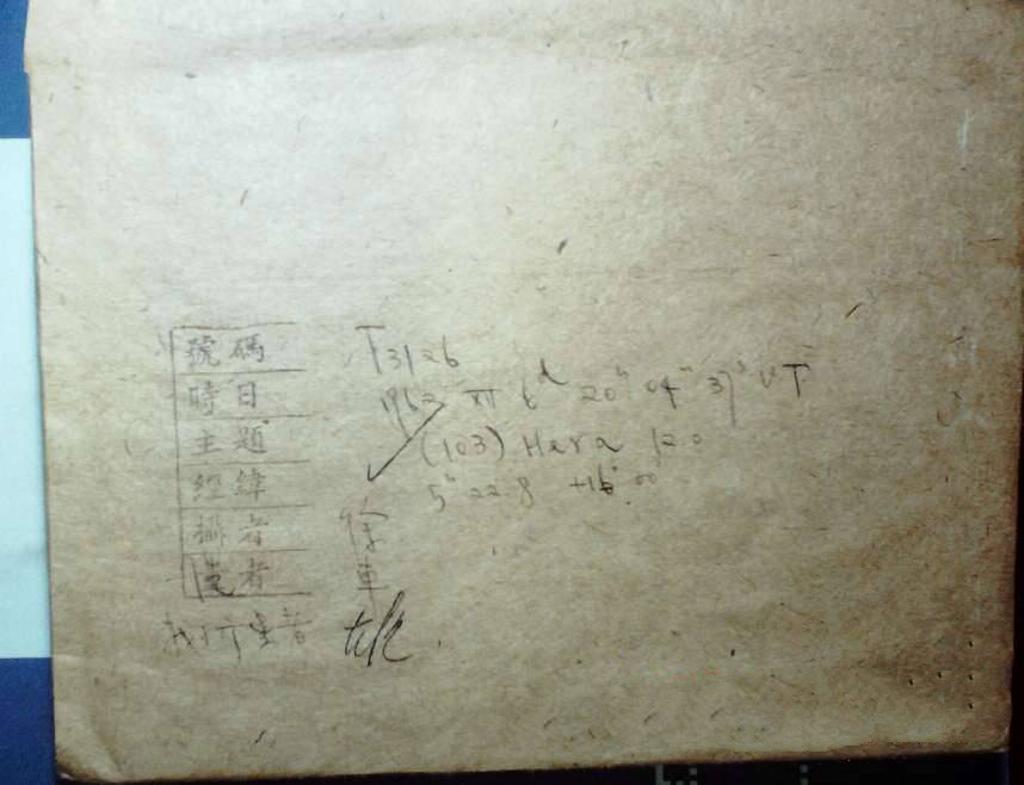 號碼 T3126
時日 1962 XII 6d 20h 04m 37s UT
主題 (103) Hera 12.0
經緯 5h 22.8 +16° 00
攝者 徐
者 車